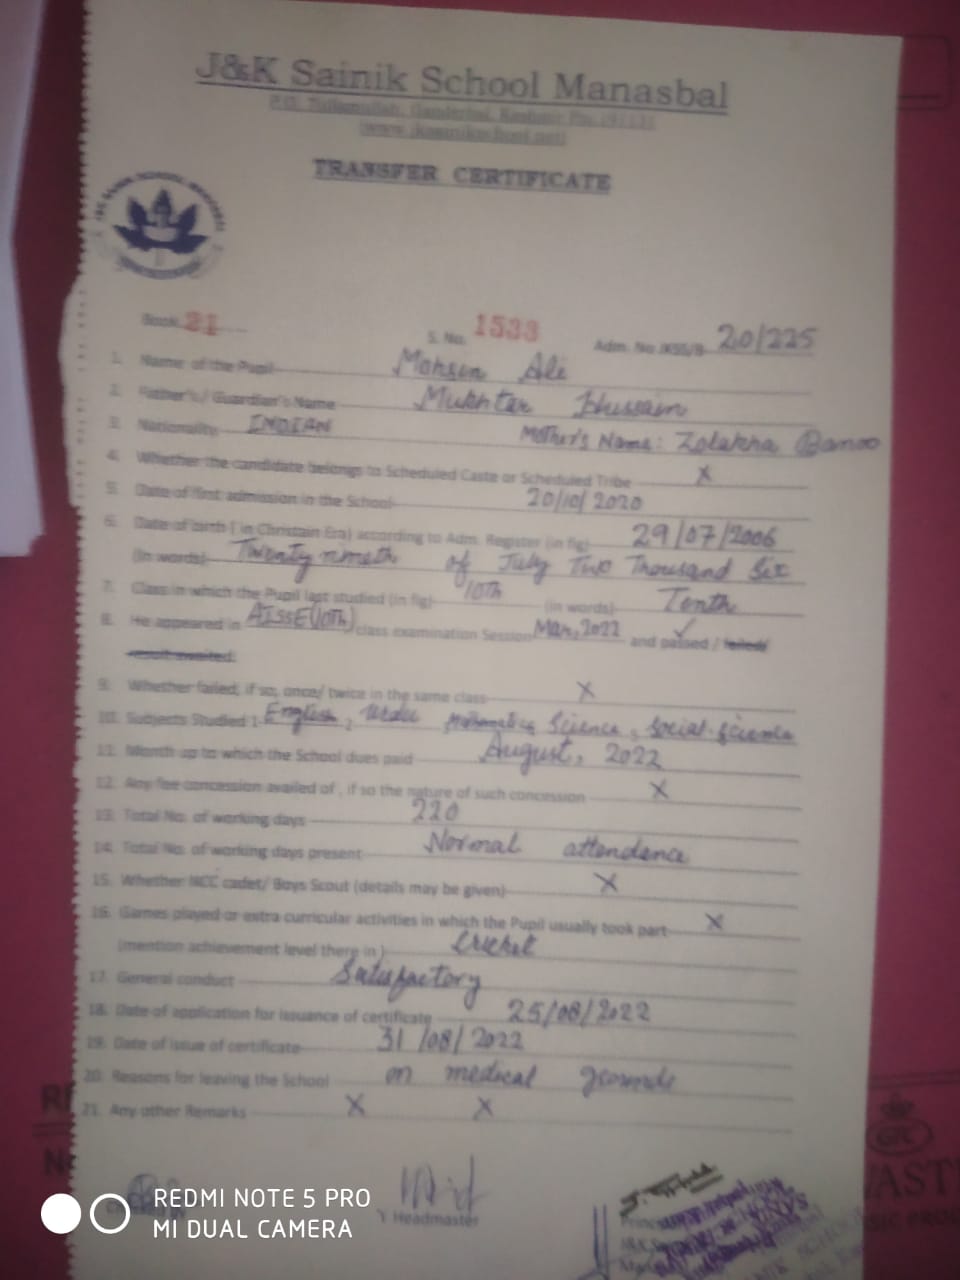 J&K Sainik School Manasbal
TRANSFER CERTIFICATE
Book 21 S. No. 1533 Adm. No. JKSS/B 20/225
1. Name of the Pupil Mohsin Ali
2. Father's/ Guardian's Name Mukhtar Hussain
3. Nationality INDIAN Mother's Name: Zolekha Banoo
4. Whether the candidate belongs to Scheduled Caste or Scheduled Tribe X
5. Date of first admission in the School 20/10/2020
6. Date of birth ( in Christain Era) according to Adm. Register (in fig) 29/07/2006
(in words) Twenty nineth of July Two Thousand Six
7. Class in which the Pupil last studied (in fig) 10th (in words) Tenth
8. He appeared in AISSE(10th) class examination Session Mar, 2022 and passed / failed/
result awaited.
9. Whether failed, if so, once/ twice in the same class X
10. Subjects Studied :- English, Urdu Mathematics, Science, Social-Science
11. Month up to which the School dues paid August, 2022
12. Any fee concession availed of , if so the nature of such concession X
13. Total No. of working days 220
14. Total No. of working days present Normal attendence
15. Whether NCC cadet/ Boys Scout (details may be given) X
16. Games played or extra curricular activities in which the Pupil usually took part X
(mention achievement level there in ) Cricket
17. General conduct Satisfactory
18. Date of application for issuance of certificate 25/08/2022
19. Date of issue of certificate 31/08/2022
20. Reasons for leaving the School on medical grounds
21. Any other Remarks X X
Headmaster
REDMI NOTE 5 PRO
MI DUAL CAMERA